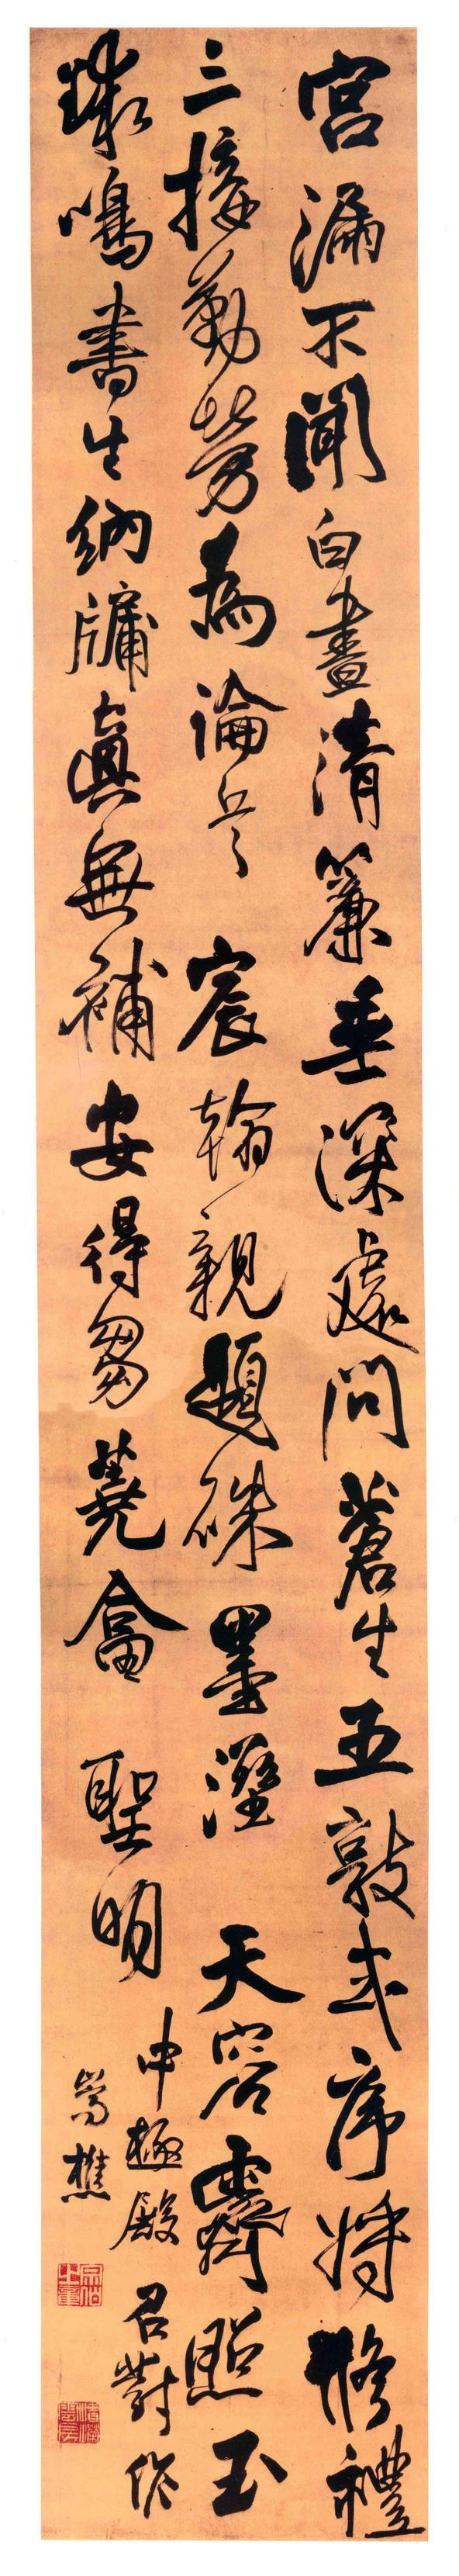 宮漏不聞白晝清簾垂深處問蒼生五敦式序將脩禮
三接勤勞為論兵 宸翰親題硃墨溼 天容霽照玉
球鳴書生納牖真無補安得芻蕘畣 聖明
中極殿 召對作
嵩樵